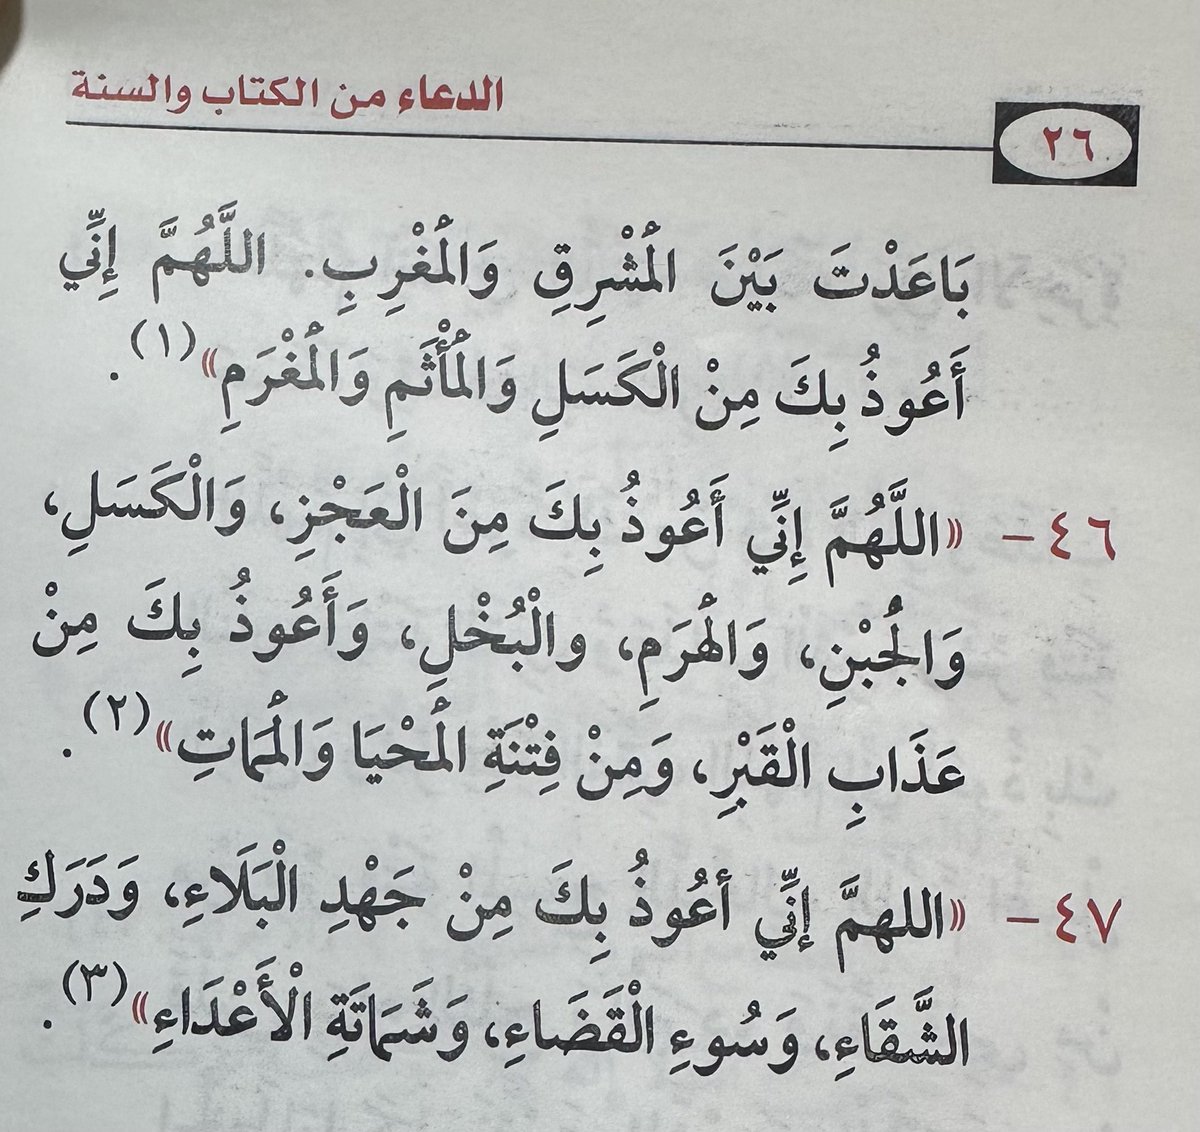 الدعاء من الكتاب والسنة
٢٦
بَاعَدْتَ بَيْنَ الْمَشْرِقِ وَالْمَغْرِبِ. اللَّهُمَّ إِنِّي
أَعُوذُ بِكَ مِنْ الْكَسَلِ وَالْمَأْثَمِ وَالْمَغْرَمِ»(١).
٤٦- «اللَّهُمَّ إِنِّي أَعُوذُ بِكَ مِنَ الْعَجْزِ، وَالْكَسَلِ،
وَالْجُبْنِ، وَالْهَرَمِ، والْبُخْلِ، وَأَعُوذُ بِكَ مِنْ
عَذَابِ الْقَبْرِ، وَمِنْ فِتْنَةِ الْمَحْيَا وَالْمَمَاتِ»(٢).
٤٧- «اللهمَّ إِنِّي أعُوذُ بِكَ مِنْ جَهْدِ الْبَلَاءِ، وَدَرَكِ
الشَّقَاءِ، وَسُوءِ الْقَضَاءِ، وَشَمَاتَةِ الْأَعْدَاءِ»(٣).